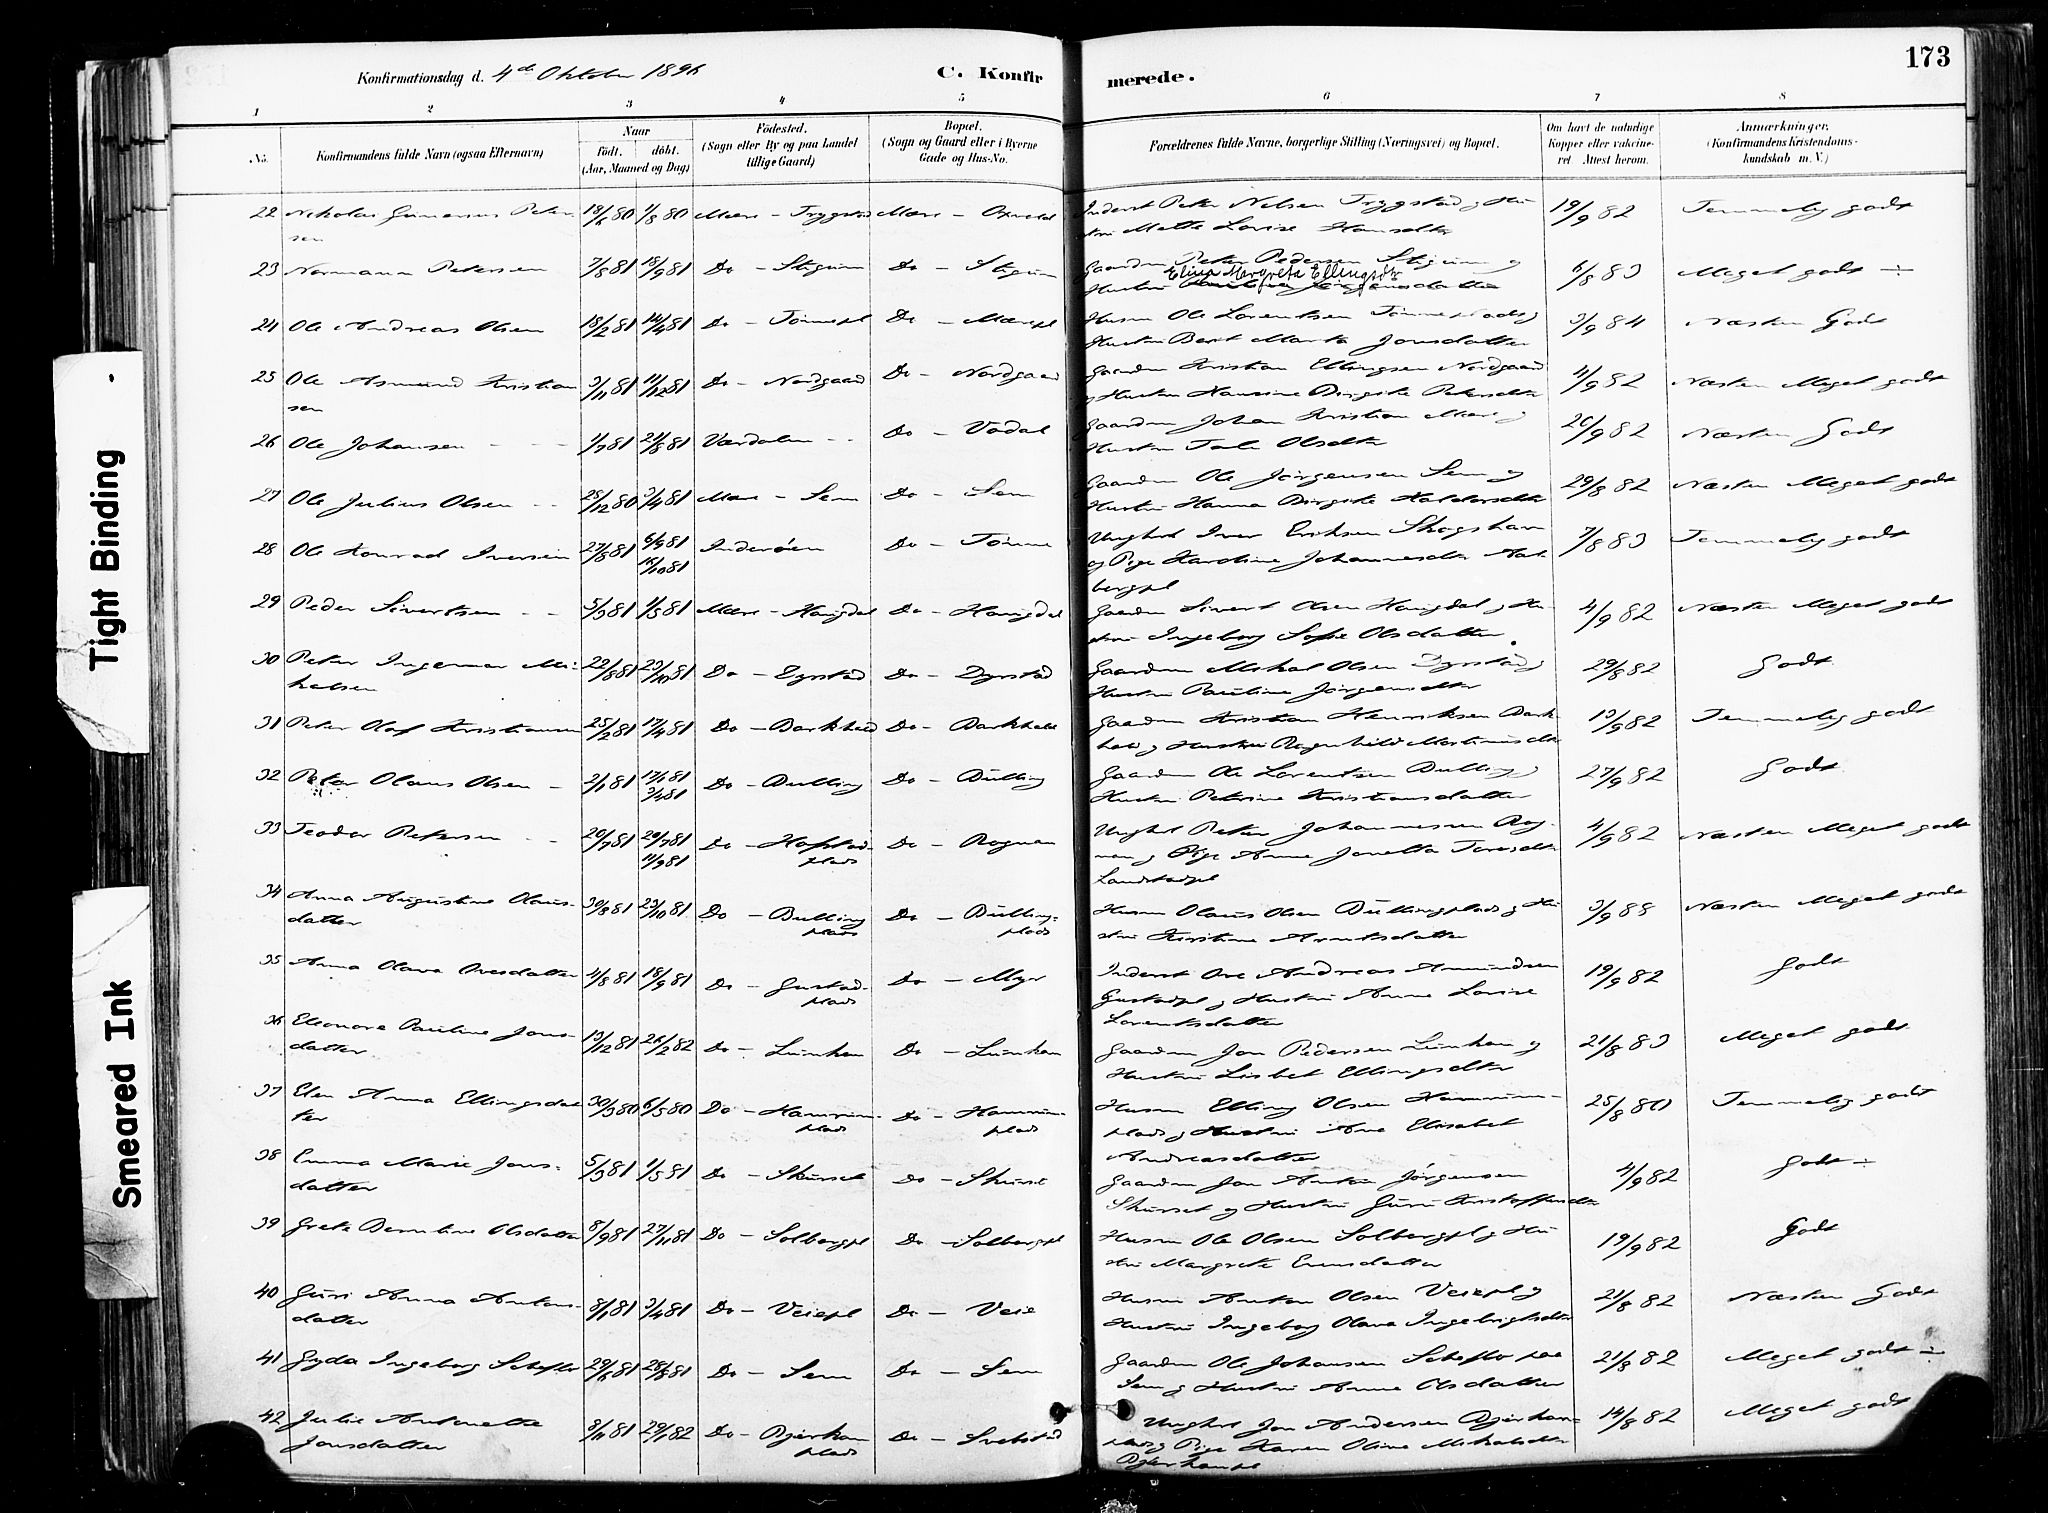 173
Konfirmationsdag d. 4de Oktober 1896
C. Konfirmerede.
1 2 3 4 5 6 7 8
No.
Konfirmandens fulde Navn (ogsaa Efternavn)
Naar
födt. döbt.
(Aar, Maaned og Dag)
Födested.
(Sogn eller By og paa Landet
tillige Gaard)
Bopæl.
(Sogn og Gaard eller i Byerne
Gade og Hus-No.
Forældrenes fulde Navne, borgerlige Stilling (Næringsvei) og Bopæl.
Om havt de naturlige
Kopper eller vakcine-
ret Attest herom.
Anmærkninger.
(Konfirmandens Kristendoms-
kundskab m. V.)
22 Nikolai Gunerius Peter- 18/6 80 1/8 80 Mære - Trygstad Mære - Inderst Peter Nelsen Trygstad og Hu- 19/9 82 Temmelig godt
sen stru Mette Lovise Hansdtr
23 Normann Petersen 7/8 81 18/9 81 Do - Stigum Do - Stigum Gaardm Peter Pedersen Stigum og 6/8 83 Meget godt ÷
Elina Margreta Ellingsdtr
Hustru
24 Ole Andreas Olsen 18/2 81 14/4 81 Do - Tönnepl Do - Mærepl Husm Ole Lorentsen Tönneplads og 3/9 84 Næsten Godt
Hustru Berit Marta Jonsdatter
25 Ole Asmund Kristian 3/11 81 11/12 81 Do - Nordgaard Do - Nordgaard Gaardm Kristian Ellingsen Nordgaard 11/9 82 Næsten Meget godt
sen og Hustru Hansine Birgitte Petersdtr
26 Ole Johansen 1/7 81 21/8 81 Værdalen Do - Vodal Gaardm Johan Kristian Mære og 26/9 82 Næsten Godt
Hustru Olsdtr
27 Ole Julius Olsen 28/12 80 3/4 81 Mære - Sem Do - Sem Gaardm Ole Jörgensen Sem og 29/8 82 Næsten Meget godt
Hustru Hanna Birgitte Haldorsdtr
28 Ole Konrad Iversen 27/8 81 6/9 81 Inderöen Do - Tönne Ungkrl Iver Eriksen Skogshavn 7/8 83 Temmelig godt
16/10 81 og Pige Karoline Johannesdtr
bergpl
29 Peder Sivertsen 5/3 81 1/5 81 Mære - Haugdal Do - Haugdal Gaardm Sivert Olsen Haugdal og Hu- 4/9 82 Næsten Meget godt
stru Ingeborg Sofie Olsdatter
30 Peter Ingemar Mi- 22/8 81 23/10 81 Do - Dyrstad Do - Dyrstad Gaardm Mikal Olsen Dyrstad og 29/8 82 Godt
kalsen Hustru Pauline Jörgensdtr
31 Peter Olaf Kristiansen 25/2 81 17/4 81 Do - Barkhald Do - Barkhald Gaardm Kristian Henriksen Bark- 13/9 82 Temmelig godt
hald og Hustru Ragnhild Martinusdtr
32 Peter Olaus Olsen 2/1 81 17/1 81 Do - Bulling Do - Bulling Gaardm Ole Lorentsen Bulling og 27/9 82 Godt
3/4 81 Hustru Petrine Kristiansdatter
33 Teodor Petersen 20/7 81 29/7 81 Do - Hofstad- Do - Rognan Ungkrl Peter Johannesen Rog- 4/9 82 Næsten Meget godt
11/9 81 plads nan og Pige Anne Jonetta
Landstadpl
34 Anna Augustine Olaus- 30/8 81 23/10 81 Do - Bulling Do - Bulling- Husm Olaus Olsen Bullingplads og Hu- 3/9 88 Næsten Meget godt
datter plads plads stru Kirstine Arntsdatter
35 Anna Olava Ovesdatter 4/8 81 18/9 81 Do - Gustad- Do - Myr Inderst Ove Andreas Amundsen 19/9 82 Godt
plads Gustadpl og Hustru Anne Lovise
Lorentsdatter
36 Eleonora Pauline Jons- 13/12 81 26/2 82 Do - Lunhan Do - Lunhan Gaardm Jon Pedersen Lunhan og 21/8 83 Meget godt
datter Hustru Lisbet Ellingsdtr
37 Elen Anna Ellingsdat 30/3 80 6/5 80 Do - Hamrum- Do - Hamrum- Husm Elling Olsen Hamrum- 25/8 80 Temmelig godt
ter plads plads plads og Hustru Ane Elisabet
Andreasdatter
38 Emma Marie Jons- 5/3 81 1/5 81 Do - Skurset Do - Skurset Gaardm Jon Anton Jörgensen 4/9 82 Godt ÷
datter Skurset og Hustru Guri Kristoffersdtr
39 Grete Berntine Olsdatter 8/9 81 27/11 81 Do - Solbergpl Do - Solbergpl Husm Ole Olsen Solbergpl og Hu 19/9 82 Godt
stru Margrete Evensdatter
40 Guri Anna Antons- 8/1 81 3/4 81 Do - Veiepl Do - Veie Husm Anton Olsen Veiepl og 21/8 82 Næsten Godt
datter Hustru Ingeborg Olava Ingebrigtsdtr
41 Gyda Ingeborg Scheflo 29/6 81 28/8 81 Do - Sem Do - Sem Gaardm Ole Johansen Scheflo paa 21/8 82 Meget godt ÷
Sem og Hustru Anne Olsdatter
42 Julie Antonette 8/11 81 29/1 82 Do - Bjerkan Do - Svebstad Ungkrl Jon Andersen Bjerkan- 14/8 82 Meget godt
Jonsdatter plads plads og Pige Karen Oline Mikalsdtr
Bjerkanpl
Tight Binding
Smeared Ink